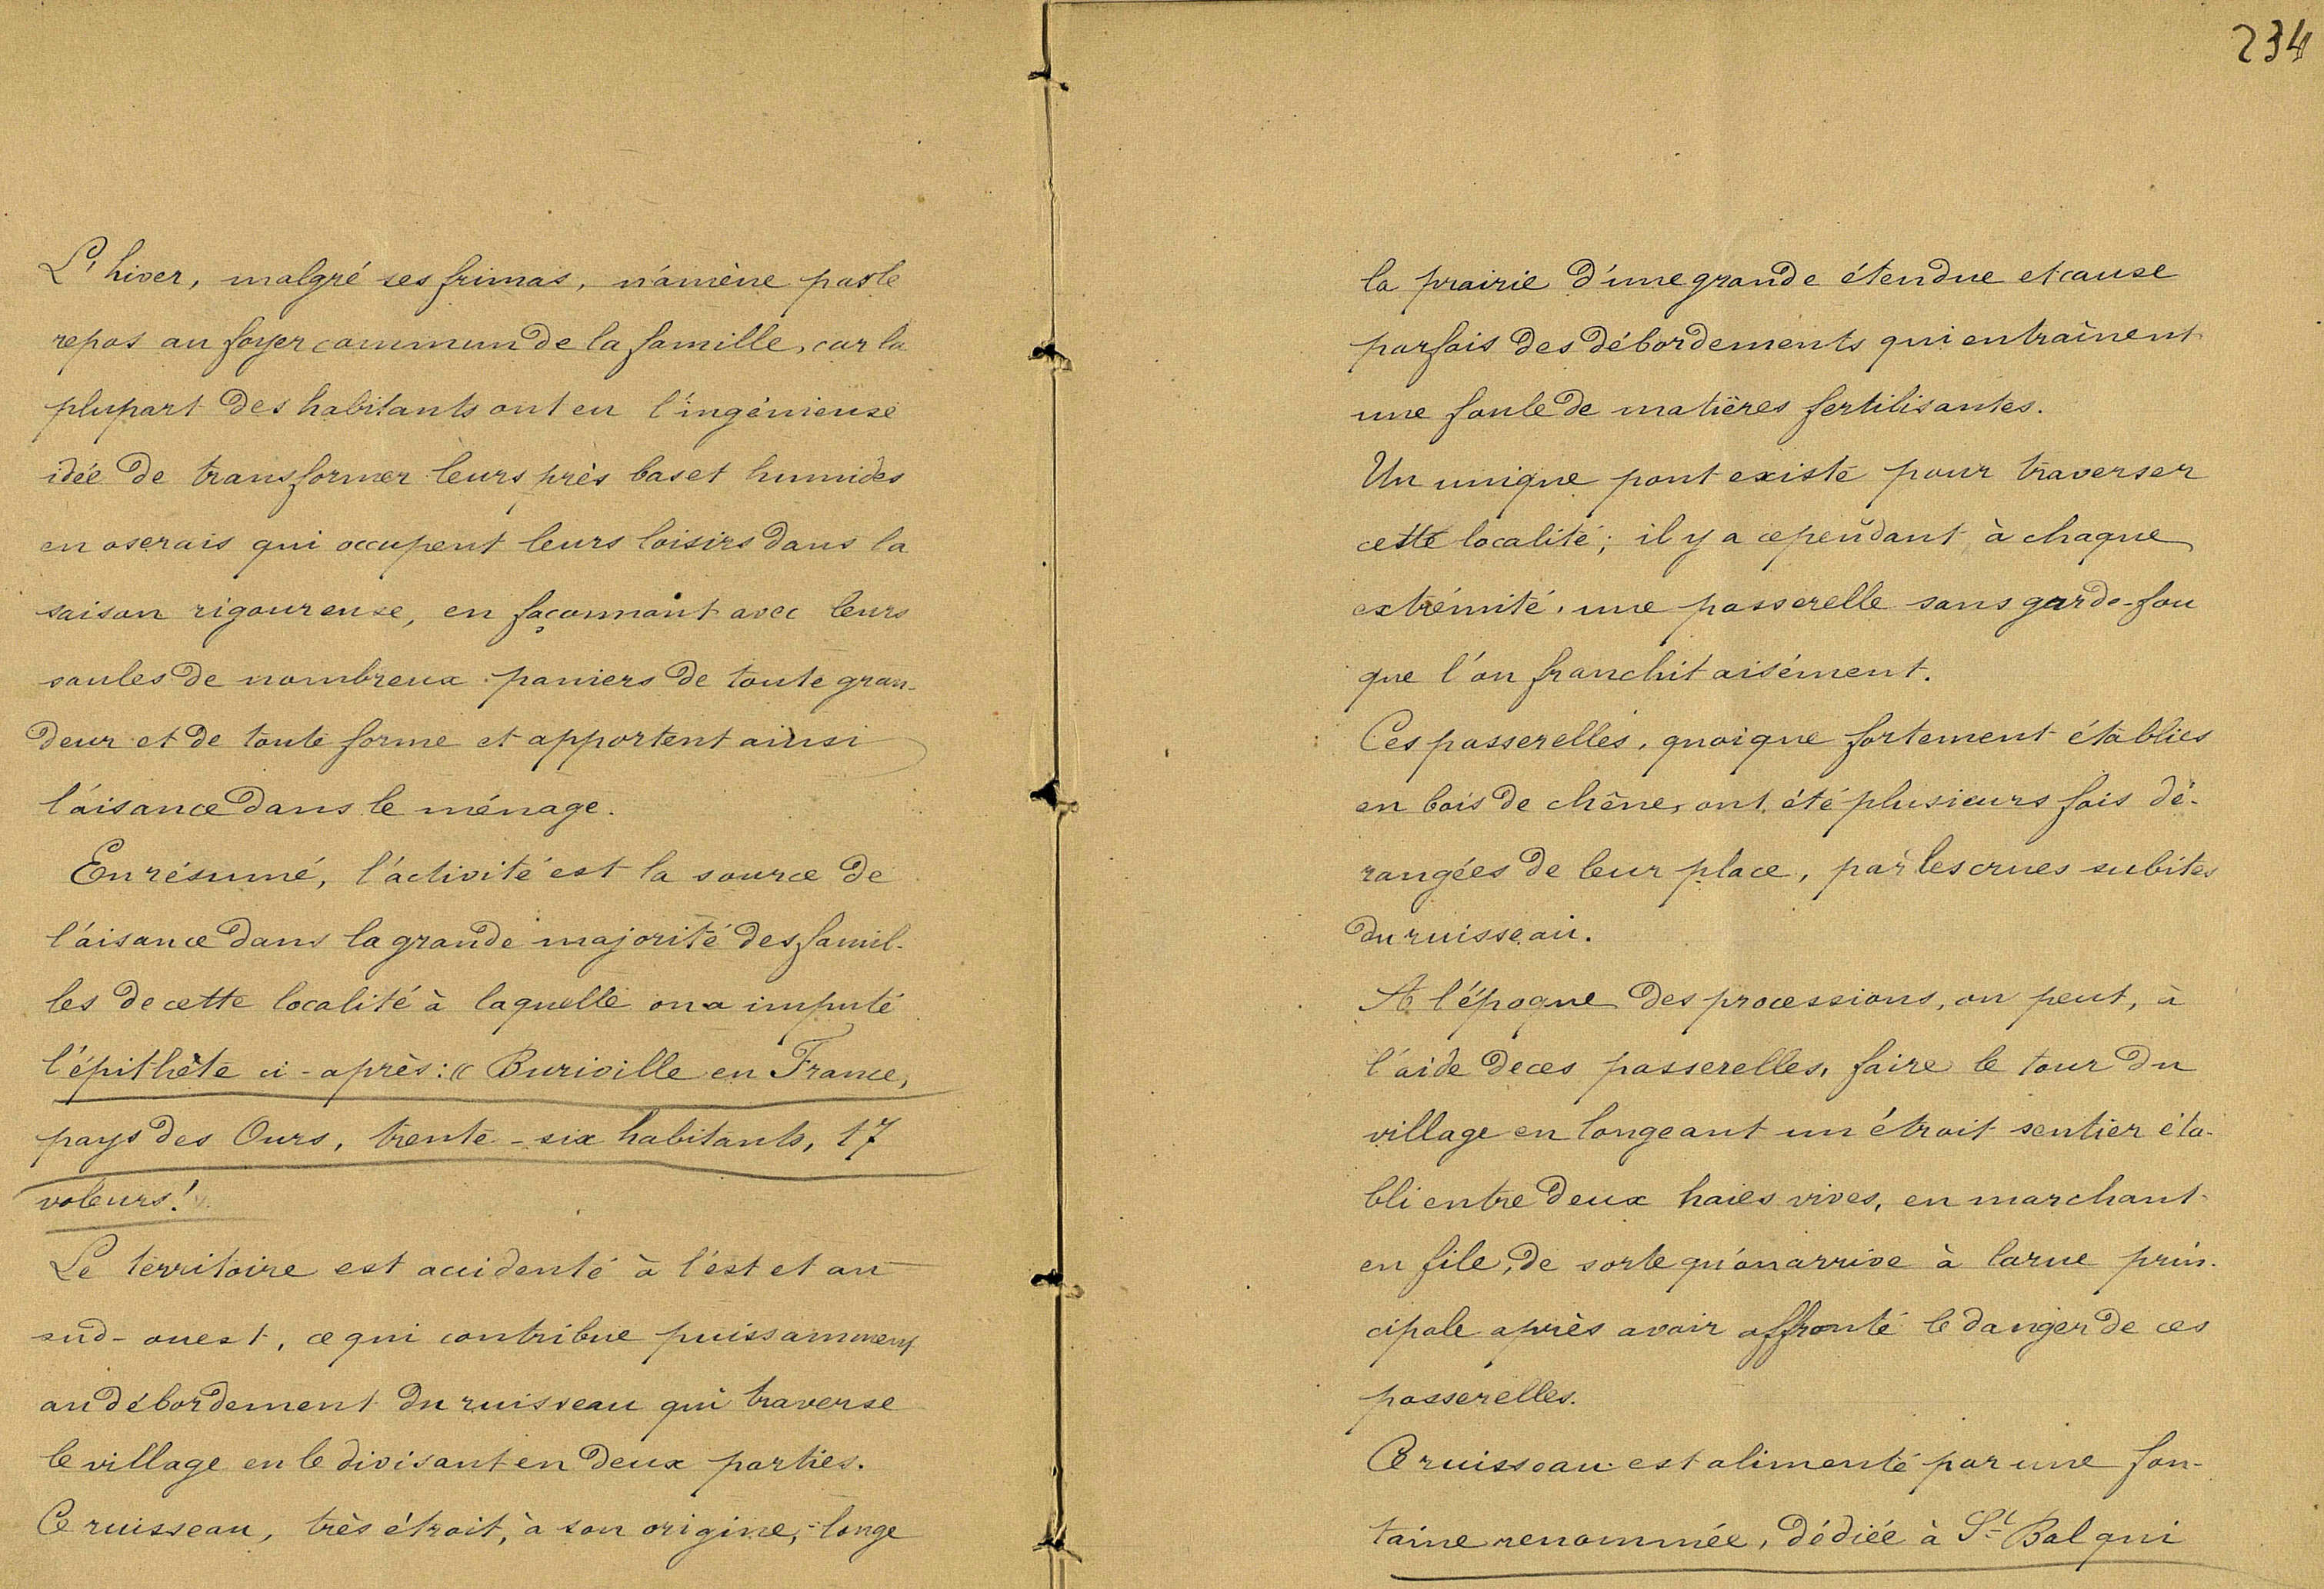 L'hiver, malgré ses frimas, n'amène pas le
repos au foyer commun de la famille, car la
plupart des habitants ont eu l'ingénieuse
idée de transformer leurs près bas et humides
en oserais qui occupent leurs loisirs dans la
saison rigoureuse, en façonnant avec leurs
saules de nombreux paniers de toute gran-
deur et de toute forme et apportent ainsi
l'aisance dans le ménage.
En résumé, l'activité est la source de
l'aisance dans la grande majorité des famil-
les de cette localité à laquelle on a imputé
l'épithète ci-après: « Buriville en France,
pays des Ours, trente-six habitants, 17
voleurs! »
Le territoire est accidenté à l'est et au
sud-ouest, ce qui contribue puissamment
au débordement du ruisseau qui traverse
le village en le divisant en deux parties.
Ce ruisseau, très étroit, à son origine, longe
234
la prairie d'une grande étendue et cause
parfois des débordements qui entraînent
une foule de matières fertilisantes.
Un unique pont existe pour traverser
cette localité; il y a cependant à chaque
extrémité, une passerelle sans garde-fou
que l'on franchit aisément.
Ces passerelles, quoique fortement établies
en bois de chêne, ont été plusieurs fois dé-
rangées de leur place, par les crues subites
du ruisseau.
A l'époque des processions, on peut, à
l'aide de ces passerelles, faire le tour du
village en longeant un étroit sentier éta-
bli entre deux haies vives, en marchant
en file, de sorte qu'on arrive à la rue prin-
cipale après avoir affronté le danger de ces
passerelles.
Ce ruisseau est alimenté par une fon-
taine renommée, dédiée à St Bal qui